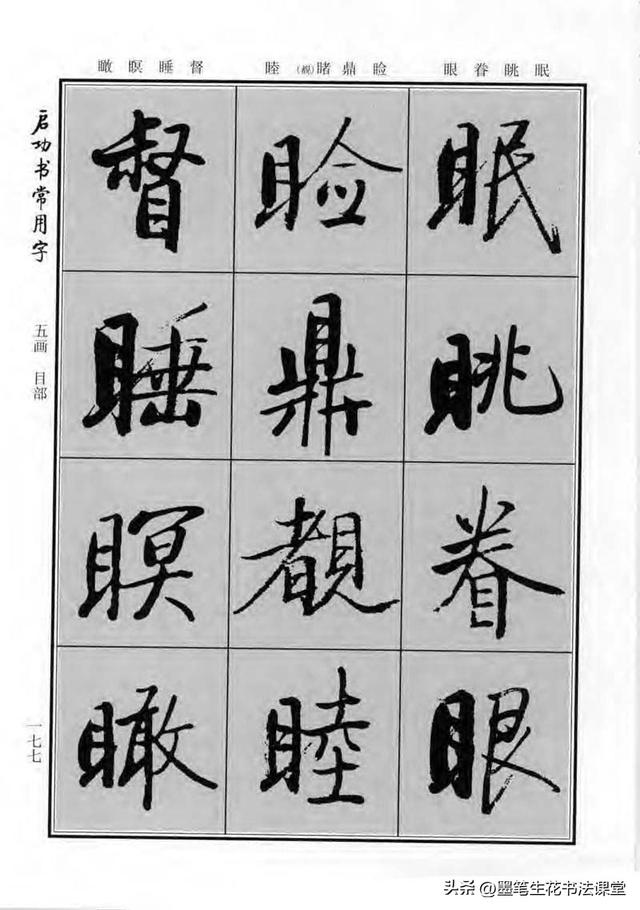 眠眺眷眼
睑鼎睹(覩)睦
督睡瞑瞰
眠眺眷眼
睑鼎覩睦
督睡瞑瞰
启功书常用字
五画 目部
一七七
头条 @墨笔生花书法课堂